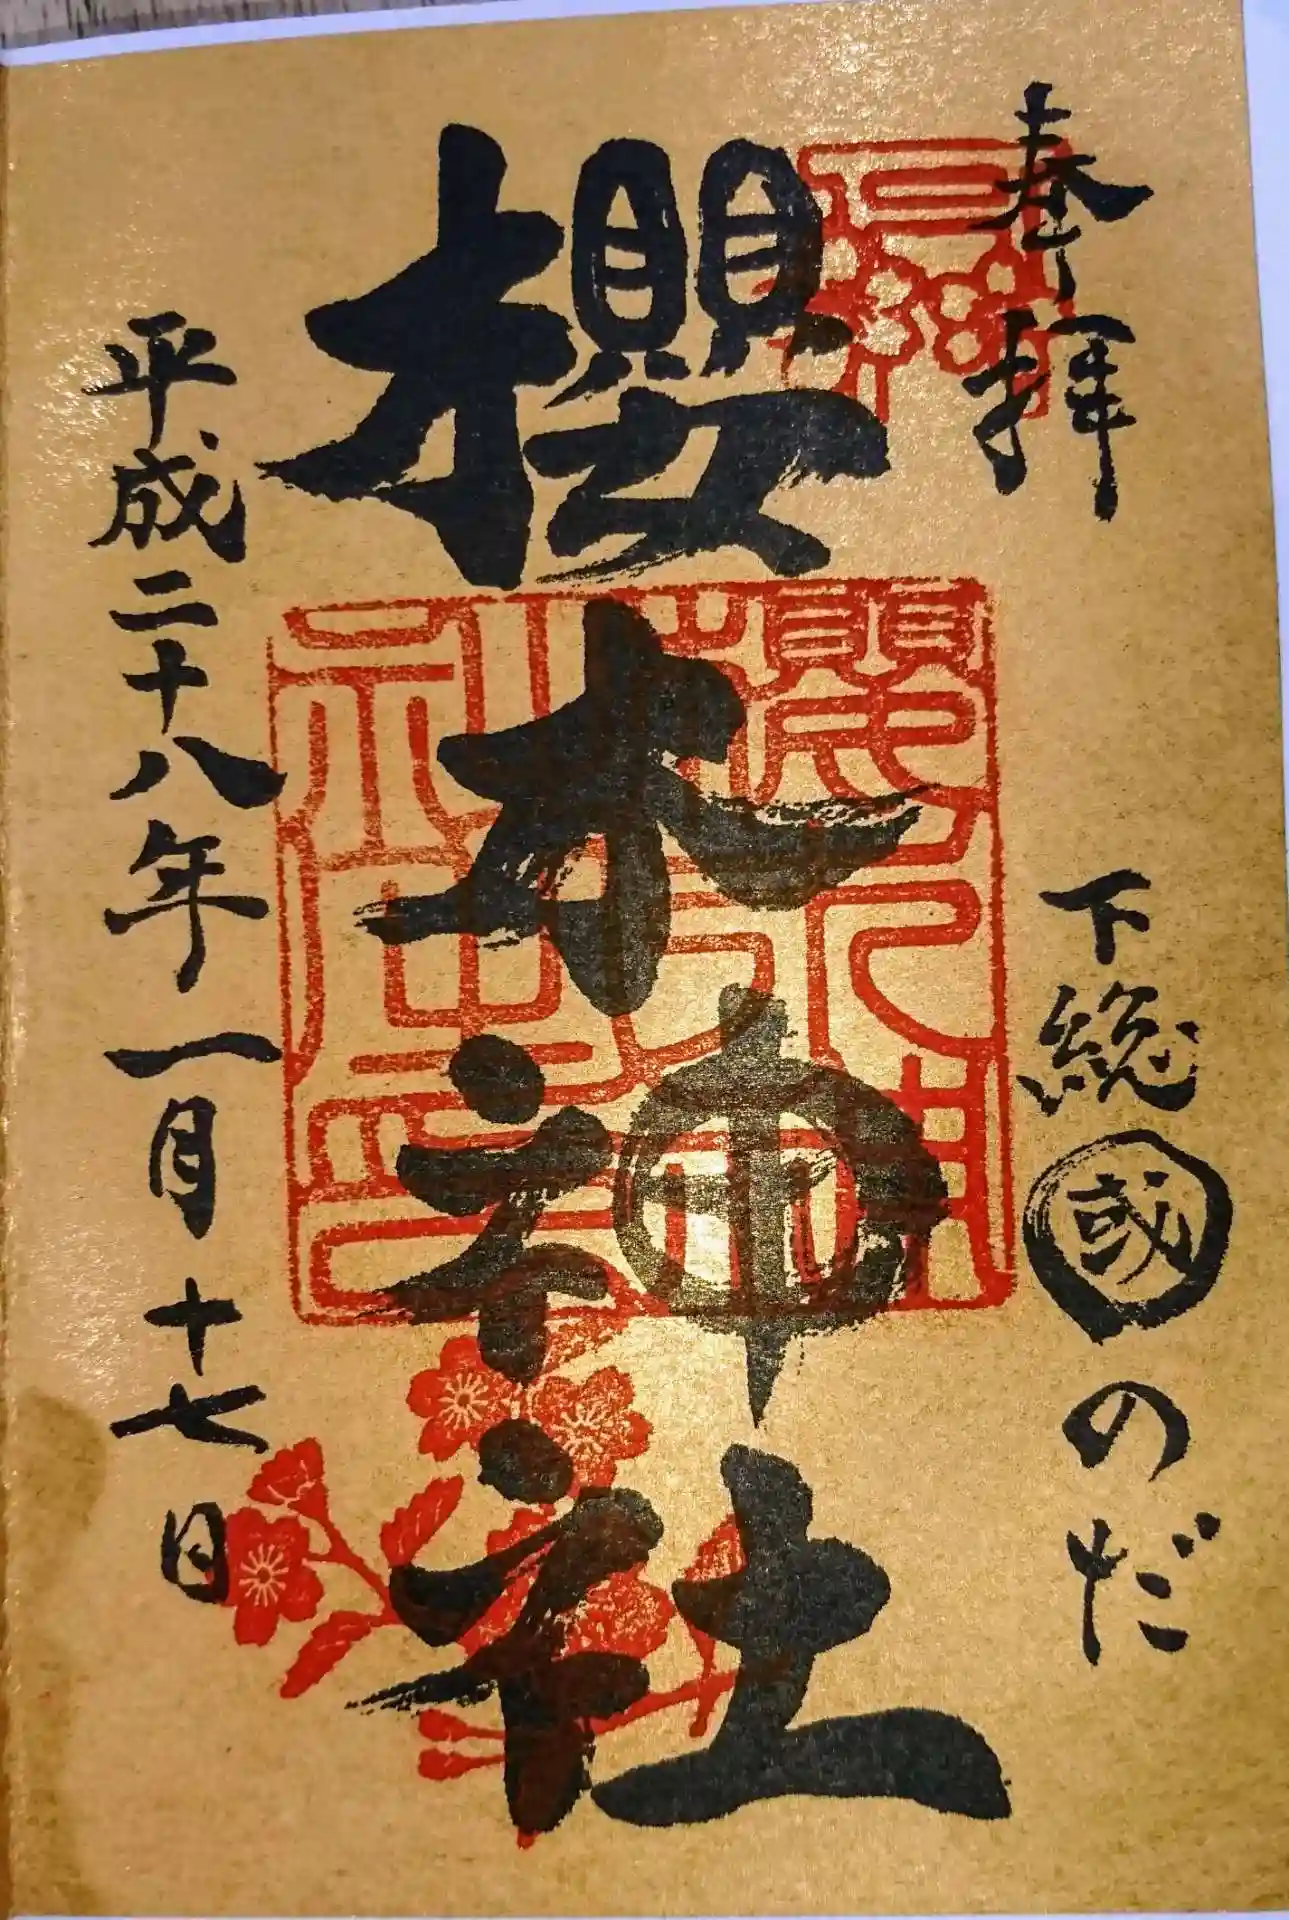 奉拝
下総國のだ
櫻木神社
平成二十八年一月十七日
櫻木神社之印